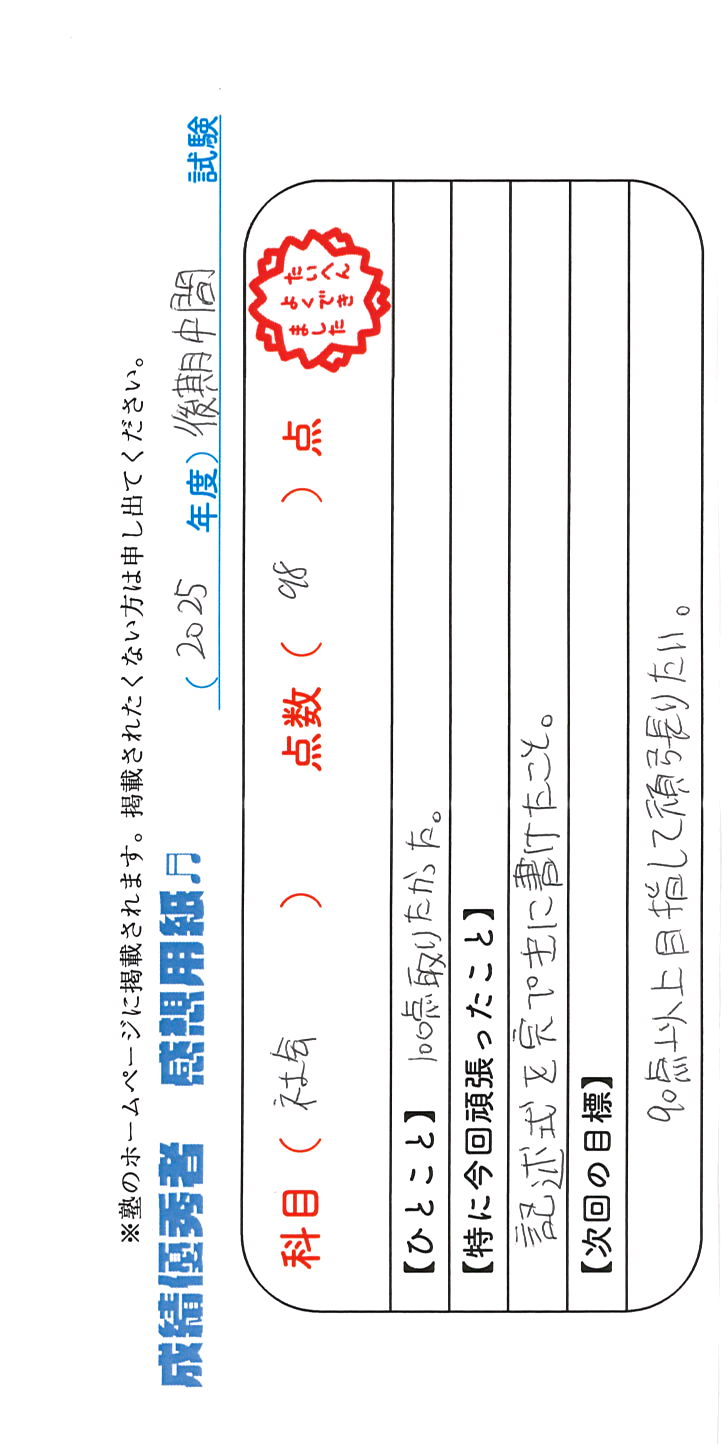 ※塾のホームページに掲載されます。掲載されたくない方は申し出てください。
成績優秀者 感想用紙♫ （2025 年度）後期中間 試験
科目（ 社会 ） 点数（ 98 ）点
たいへん
よくでき
ました
【ひとこと】 100点取りたかった。
【特に今回頑張ったこと】
記述式を完ペキに書けたこと。
【次回の目標】
90点以上目指して頑張りたい。